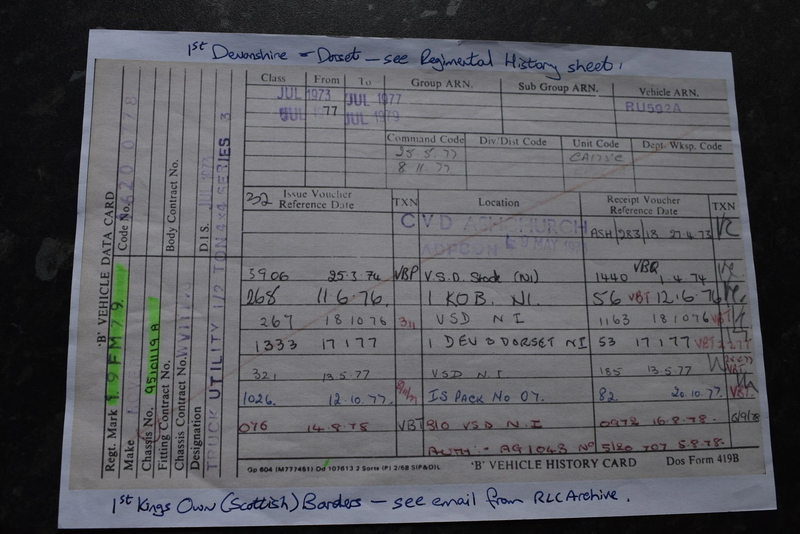 1st Devonshire & Dorset — see Regimental History sheet.
'B' VEHICLE DATA CARD
Regt. Mark 19 FM 79
Code No. 620 0778
Make
Chassis No. 95101119A
Body Contract No.
Fitting Contract No.
Chassis Contract No.
D I S. JUL 1973
Designation
TRUCK UTILITY 1/2 TON 4x4 SERIES 3
Class From To Group ARN. Sub Group ARN. Vehicle ARN.
JUL 1973 JUL 1977 RU592A
JUL 1977 JUL 1979
Command Code Div/Dist Code Unit Code Dept. Wksp. Code
25.5.77
8.11.77
32 Issue Voucher Reference Date TXN Location Receipt Voucher Reference Date TXN
CVD ASHCHURCH ASH/283/18 27.4.73
MAY
3906 25.3.74 VBP V.S.D. Stock (NI) 1440 VBQ 1.4.74
268 11.6.76. 1 KOB. NI. 56 VBT 12.6.76
267 18 10 76 311 VSD NI 1163 18.10.76 VBT
1333 17 1 77 1 DEV & DORSET NI 53 17 1 77 VBT
321 13.5.77 VSD N.I 185 13.5.77 VBT
1026. 12.10.77. IS PACK No 07. 82. 20.10.77. VBT
076 14.8.78 VBT 810 VSD N.I 0972 16.8.78. 6/9/78
AUTH - AG 1043 No 5120 707 5.8.78.
Gp 604 (M777451) Od 107613 2 Sorts (P) 2/68 SIP&DIL 'B' VEHICLE HISTORY CARD Dos Form 419B
1st Kings Own (Scottish) Borders — see email from RLC Archive.